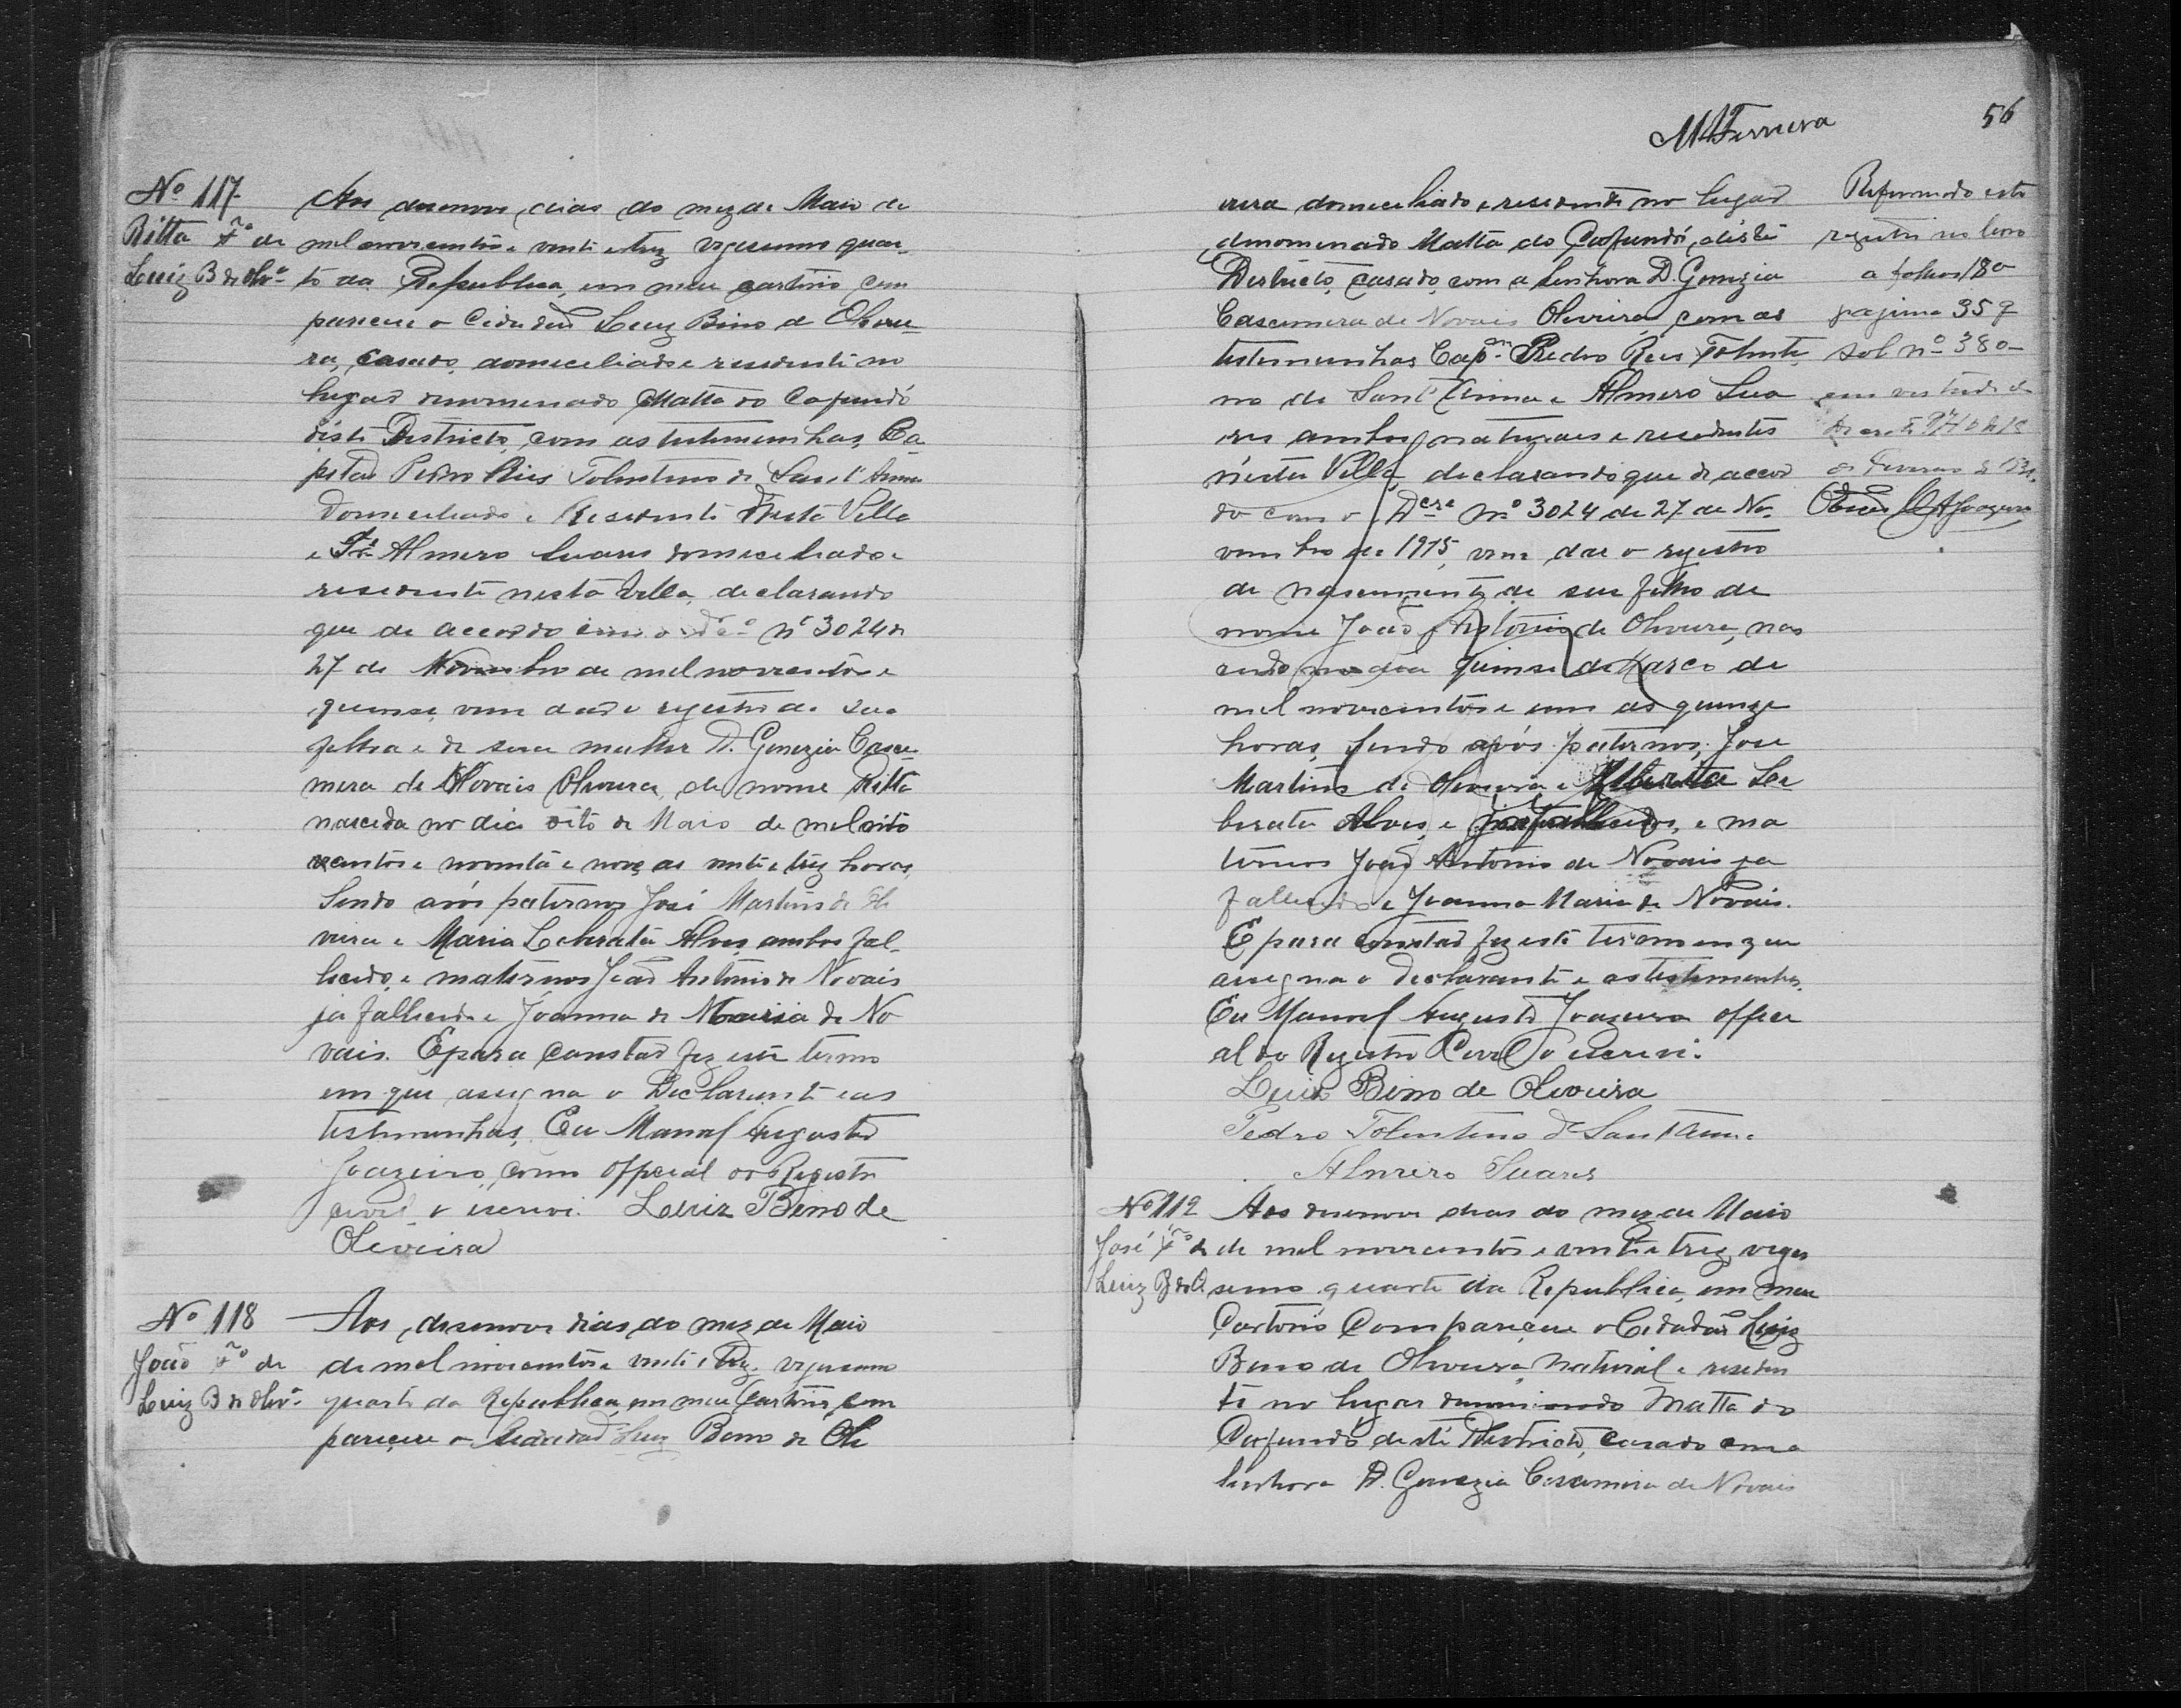 Nº 117
Ritta fª de
Luiz B de Olivª
Aos desenove dias do mez de Maio de
mil novecentos e vinti e trez vigesimo quar-
to da Republica, em meu cartorio com
pareceu o Cidadão Luiz Bino de Olivei-
ra, Casado, domeciliado e residente no
lugar denomenado Matta do Cafundó
déste Districto, com as testemunhas, Ca-
pitão Pedro Reis Tolentino de Sant'Anna
Domeciliado e Residente Nesta Villa
e Almero Suares domeciliado e
residente nesta Villa, declarando
que de accordo com o nº 3024 de
27 de Novembro de mil novecentos e
quinse, vem dar o registro de sua
filha e de sua mulher D. Genezia Case-
mera de Novais Oliveira, de nome Ritta
nascida no dia oito de Maio de mil oito
centos e noventa e nove, as vinti e trez horas,
Sendo avós paternos José Martins de Oli
veira e Maria Leberata Alves, ambos fal-
lecido, e maternos João Antonio de Novais
ja fallecido e Joanna de Maria de No
vais. E para constar fez este termo
em que assigna o Declarante e as
testemunhas. Eu Manoel Augusto
Joazeiro, como official do Registro
civil o escrevi. Luiz Bino de
Oliveira
Nº 118
João fº de
Luiz B de Olivª
Aos desenove dias do mez de Maio
de mil novecentos e vinti e trez, vigesimo
quarto da Republica, em meu Cartorio, com
pareceu o Cidadão Luiz Bino de Oli
56
M A Ferreira
veira domeciliado e residente no lugar
denomenado Matta do Cafundó, déste
Districto, Casado, com a Senhora D. Genezia
Casemera de Novais Oliveira, com as
testemunhas Capm Pedro Reis Tolenti
no de Sant'Anna e Almero Sua
res ambos naturaes e residentes
nésta Villa, declarando que de accor
do com o nº 3024 de 27 de No-
vembro de 1915, vem dar o registro
de nascimento de seu filho de
nome João Antonio de Oliveira, nas
cido no dia quinse de Março de
mil novecentos e um as quinze
horas, sendo avós paternos, José
Martins de Oliveira e Le
berata Alves, e ja fallecidos, e ma
ternos João Antonio de Novais ja
fallecido e Joanna Maria de Novais.
E para constar fez este termo em que
assigna o declarante e as testemunhas.
Eu Manoel Augusto Joazeiro offici
al do Registro Civil o escrevi.
Luiz Bino de Oliveira
Pedro Tolentino de Sant'Anna
Almero Suares
Reformado este
registro no livro
a folhas 180
pagina 359
sob nº 380
em virtude do
de Fevereiro de
Nº 119
José fº de
Luiz B de O
Aos desenove dias do mez de Maio
de mil novecentos e vinti e trez, viges
simo quarto da Republica, em meu
Cartorio Compareceu o Cidadão Luiz
Bino de Oliveira, natural e residen
te no lugar denominado Matta do
Cafundó deste Districto, casado com a
Senhora D. Genezia Casemira de Novais